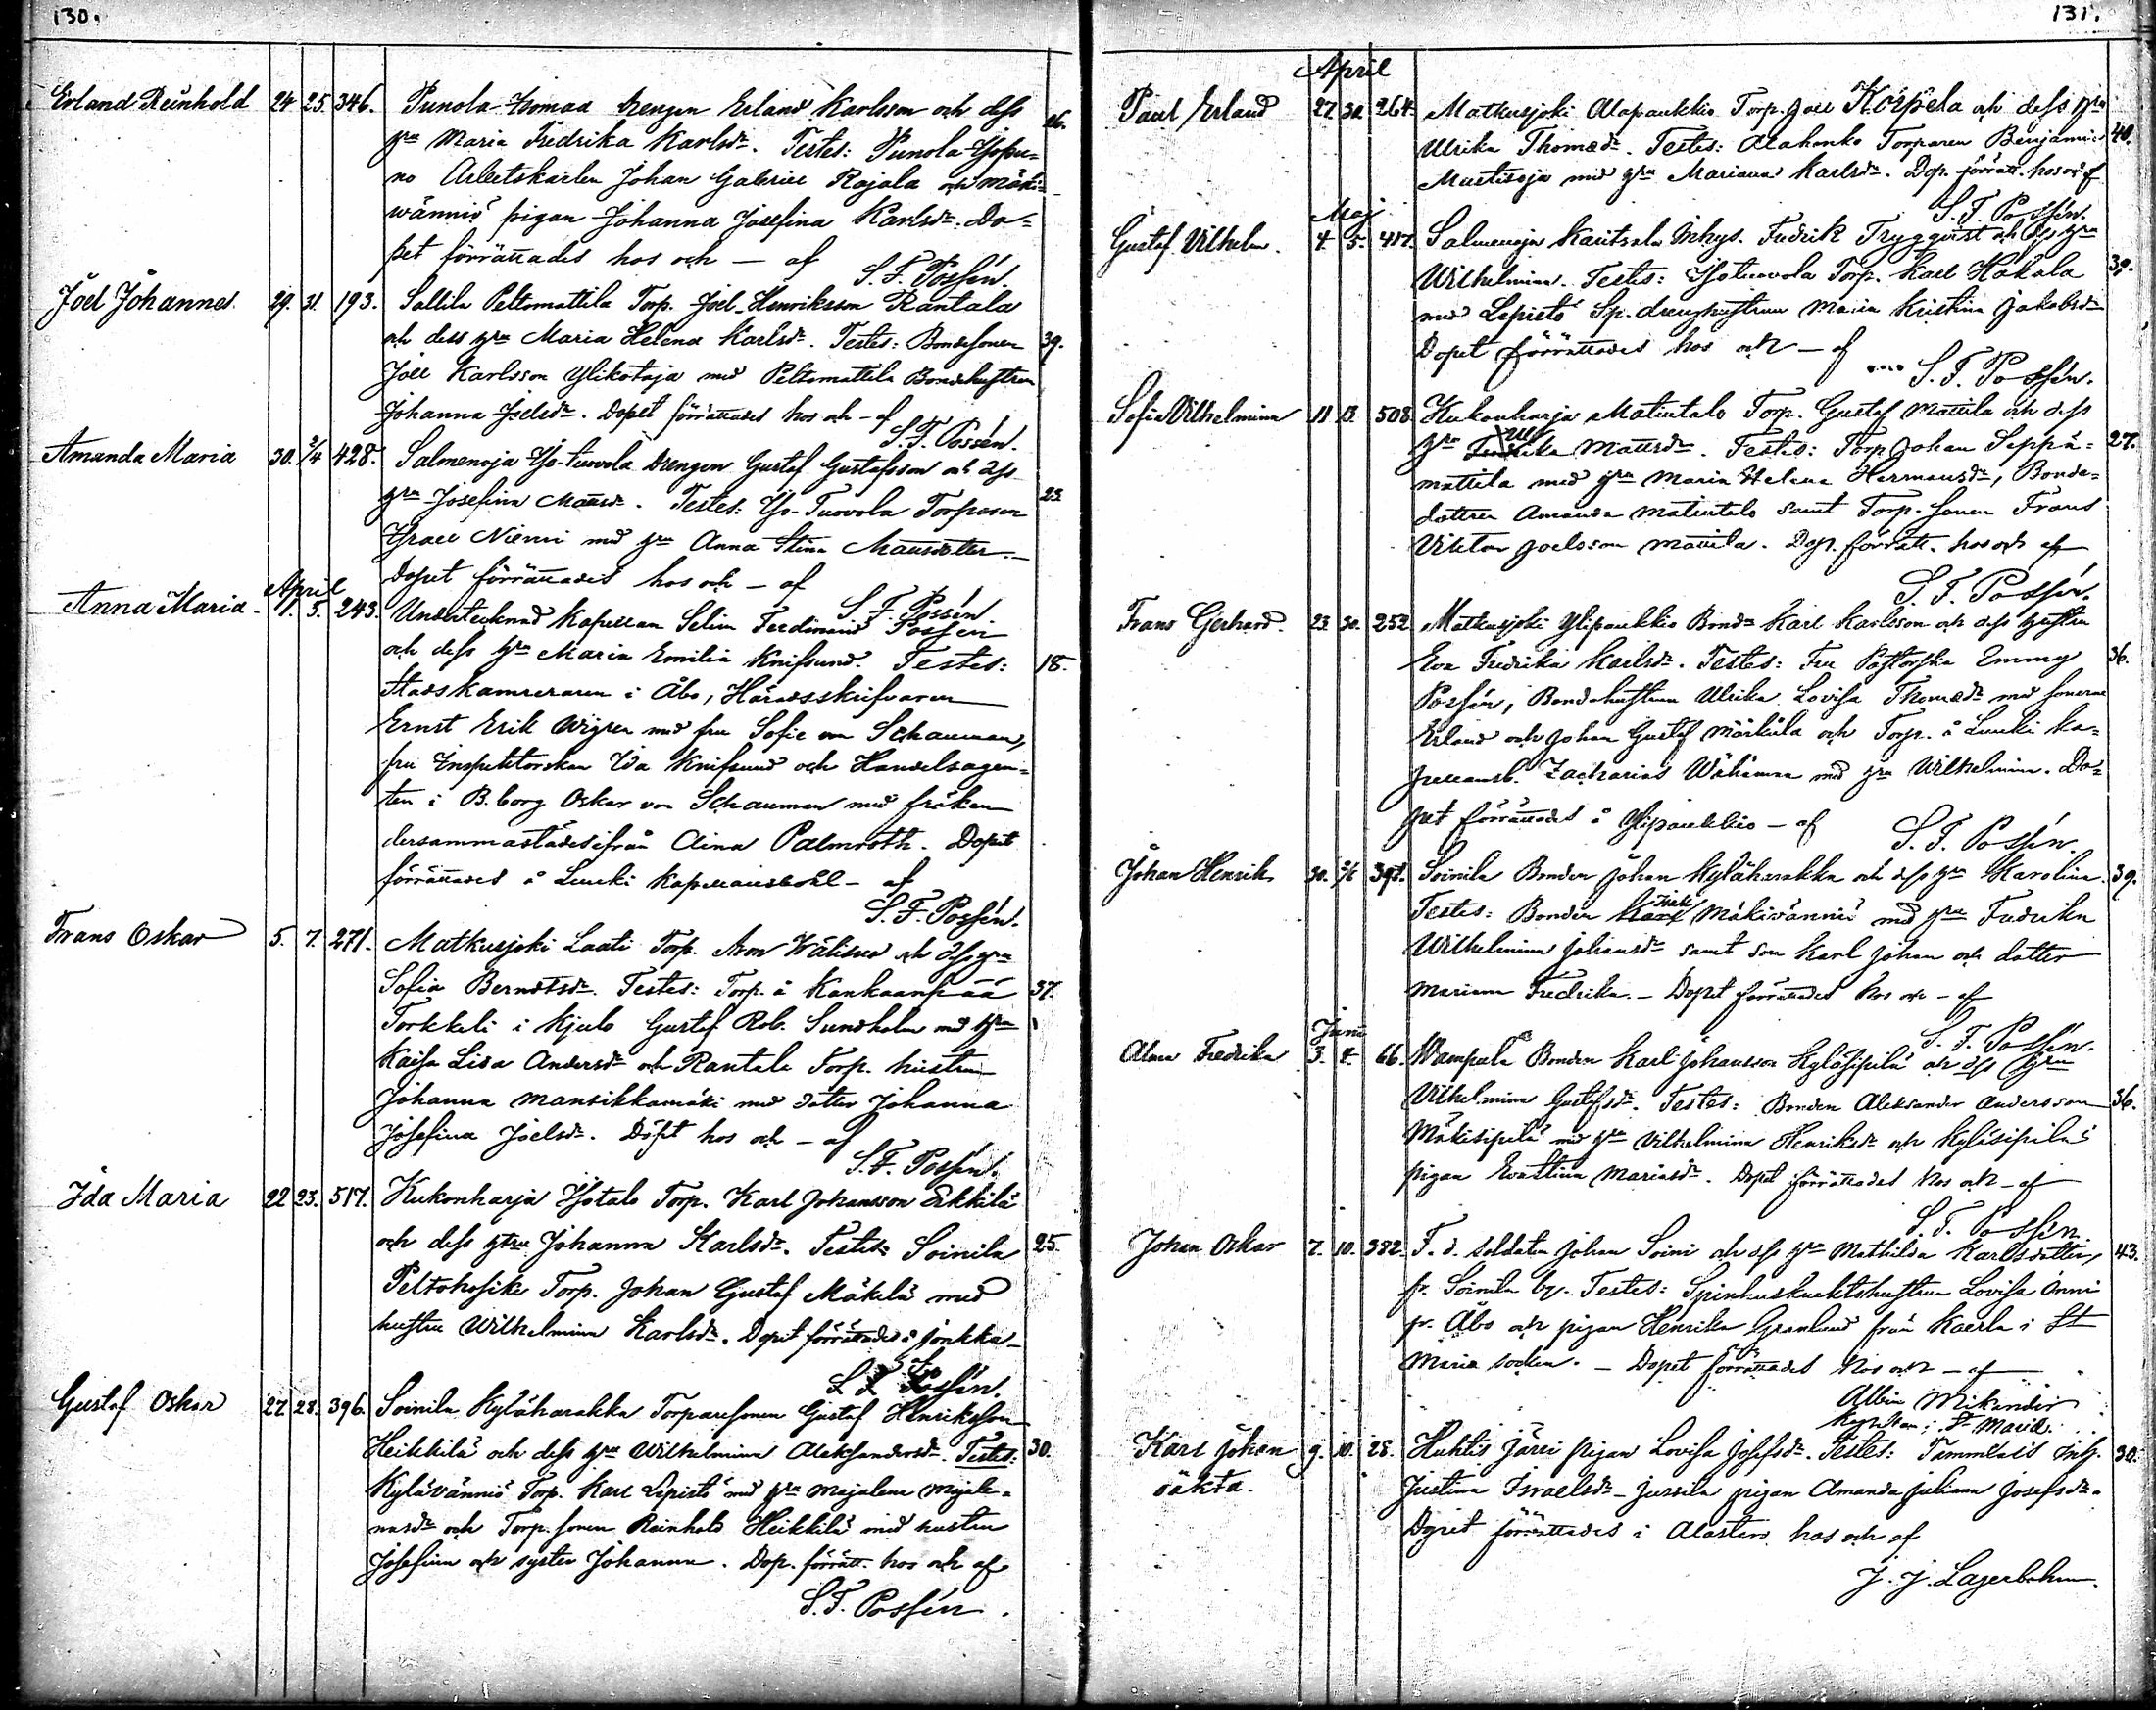 130.
Erland Reinhold 24 25. 346. Punola Isomaa Drengen Erland Karlsson och dess
hru Maria Fredrika Karlsdr. Testes: Punola Yspu= 26.
no Arbetskarlen Johan Gabriel Rajala och Mäki-
wännis pigan Johanna Josefina Karlsdr. Do=
pet förrättades hos och — af
S. F. Possén.
Joel Johannes. 29. 31. 193. Sallila Peltomattila Torp. Joel Henriksson Rantala
och dess hru Maria Helena Karlsdr. Testes: Bondesonen 39.
Joel Karlsson Ylikotaja med Peltomattila Bondehustrun
Johanna Joelsdr. Dopet förrättades hos och — af
S. F. Possén.
Amanda Maria 30. 2/4 428. Salmenoja Yso-Tuovola Drengen Gustaf Gustafsson och dess
hru Josefina Mattsdr. Testes: Yso-Tuovola Torparen 23
Israel Niemi med hru Anna Stina Mattsdotter.—
Dopet förrättades hos och — af
S. F. Possén.
April
Anna Maria 1. 5. 243. Undertecknad Kapellan Selim Ferdinand Possén
och dess hru Maria Emilia Knifsund. Testes: 18.
Stadskamreraren i Åbo, Häradsskrifvaren
Ernst Erik Wigren med fru Sofie von Schauman,
fru Inspektorskan Ida Knifsund och Handelsagen=
ten i B.borg Oskar von Schauman med fröken
dersammastädesifrån Aina Palmroth. Dopet
förrättades å Lauki kapellansbohl — af
S. F. Possén.
Frans Oskar 5. 7. 271. Matkusjoki Laati Torp. Aron Wälisuo och dess hru
Sofia Berndtsdr. Testes: Torp. å Kankaanpää 37.
Torkkeli i Kjulo Gustaf Rob. Sundholm med hru
Kaisa Lisa Andersdr och Rantala Torp. hustrun
Johanna Mansikkamäki med dotter Johanna
Josefina Joelsdr. Döpt hos och — af
S. F. Possén.
Ida Maria 22 23. 517. Kukonharja Isotalo Torp. Karl Johansson Erkkilä
och dess hru Johanna Karlsdr. Testes: Soinila 25.
Peltohosike Torp. Johan Gustaf Mäkelä med
hustru Wilhelmina Karlsdr. Dopet förrättades i Jonkka —
S. F. Possén.
Gustaf Oskar 27 28. 396. Soinila Kyläharakka Torparesonen Gustaf Henriksson
Heikkilä och dess hru Wilhelmina Aleksandersdr. Testes: 30.
Kylävännis Torp. Karl Lepistö med hru Majalena Majale=
nasdr och Torp. sonen Reinhold Heikkilä med hustru
Josefina och syster Johanna. Dop. förrätt. hos och af
S. F. Possén.
131.
April
Paul Erland 27. 30. 264. Matkusjoki Alapaukkio Torp. Joel Korpela och dess hru
Ulrika Thomasdr. Testes: Alahonko Torparen Benjamin 40.
Mustisoja med hru Mariana Karlsdr. Dop. förrätt. hos och af
S. F. Possén.
Maj
Gustaf Vilhelm. 4. 5. 417. Salmenoja Karitsala Inhys. Fredrik Tryggvist och dess hru
Wilhelmina. Testes: Ysotuovola Torp. Karl Hakala 39.
med Lepistö Sp. drenghustrun Maria Kristina Jakobsdr
Dopet förrättades hos och — af
S. F. Possén.
Sofia Vilhelmina 11 13. 508 Kukonharja Matintalo Torp. Gustaf Mattila och dess
hru Ulrika Mattsdr. Testes: Torp. Johan Seppä= 27.
mattila med hru Maria Helena Hermansdr, Bonde=
dottren Amanda Matintalo samt Torp. Sonen Frans
Viktor Joelsson Mattila. Dop. förrätt. hos och af
S. F. Possén.
Frans Gerhard. 23. 30. 252 Matkusjoki Ylipaukkio Bond. Karl Karlsson och dess hustru
Eva Fredrika Karlsdr. Testes: Fru Pastorska Emmy 36.
Possén, Bondehustrun Ulrika Lovisa Thomasdr med sonerna
Erland och Johan Gustaf Märkälä och Torp. å Lauki ka=
pellansb. Zacharias Wähämaa med hru Wilhelmina. Do=
pet förrättades å Ylipaukkio — af
S. F. Possén.
Johan Henrik 30. 2/6 398. Soinila Bonden Johan Kyläharakka och dess hru Karolina. 39.
Testes: Bonden Mäkivännis med hru Fredrika
Wilhelmina Johansdr samt son Karl Johan och dotter
Mariana Fredrika. — Dopet förrättades hos och — af
S. F. Possén.
Juni
Alma Fredrika 3. 4. 66. Wampula Bonden Karl Johansson Kyläsipilä och dess hru
Vilhelmina Gustafsdr. Testes: Bonden Aleksander Andersson 36.
Mäkisipilä med hru Vilhelmina Henriksdr och Kyläsipilä
pigan Evastina Mariasdr. Dopet förrättades hos och — af
S. F. Possén.
Johan Oskar 7. 10. 382. F. d. Soldaten Johan Soini och dess hru Mathilda Karlsdotter, 43.
fr. Soinila by. Testes: Spinhusknektshustrun Lovisa Önni
fr. Åbo och pigan Henrika Granlund från Kaerla i St
Marie socken. — Dopet förrättades hos och — af
Albin Mikander
Kapellan i St Marie.
Karl Johan 9. 10. 28. Huhtis Järvi pigan Lovisa Josefsdr. Testes: Tammiais Inh. 30.
oäkta. Justina Israelsdr — Jussila pigan Amanda Juliana Josefsdr.
Dopet förrättades i Alastaro hos och af
J. J. Lagerbohm.